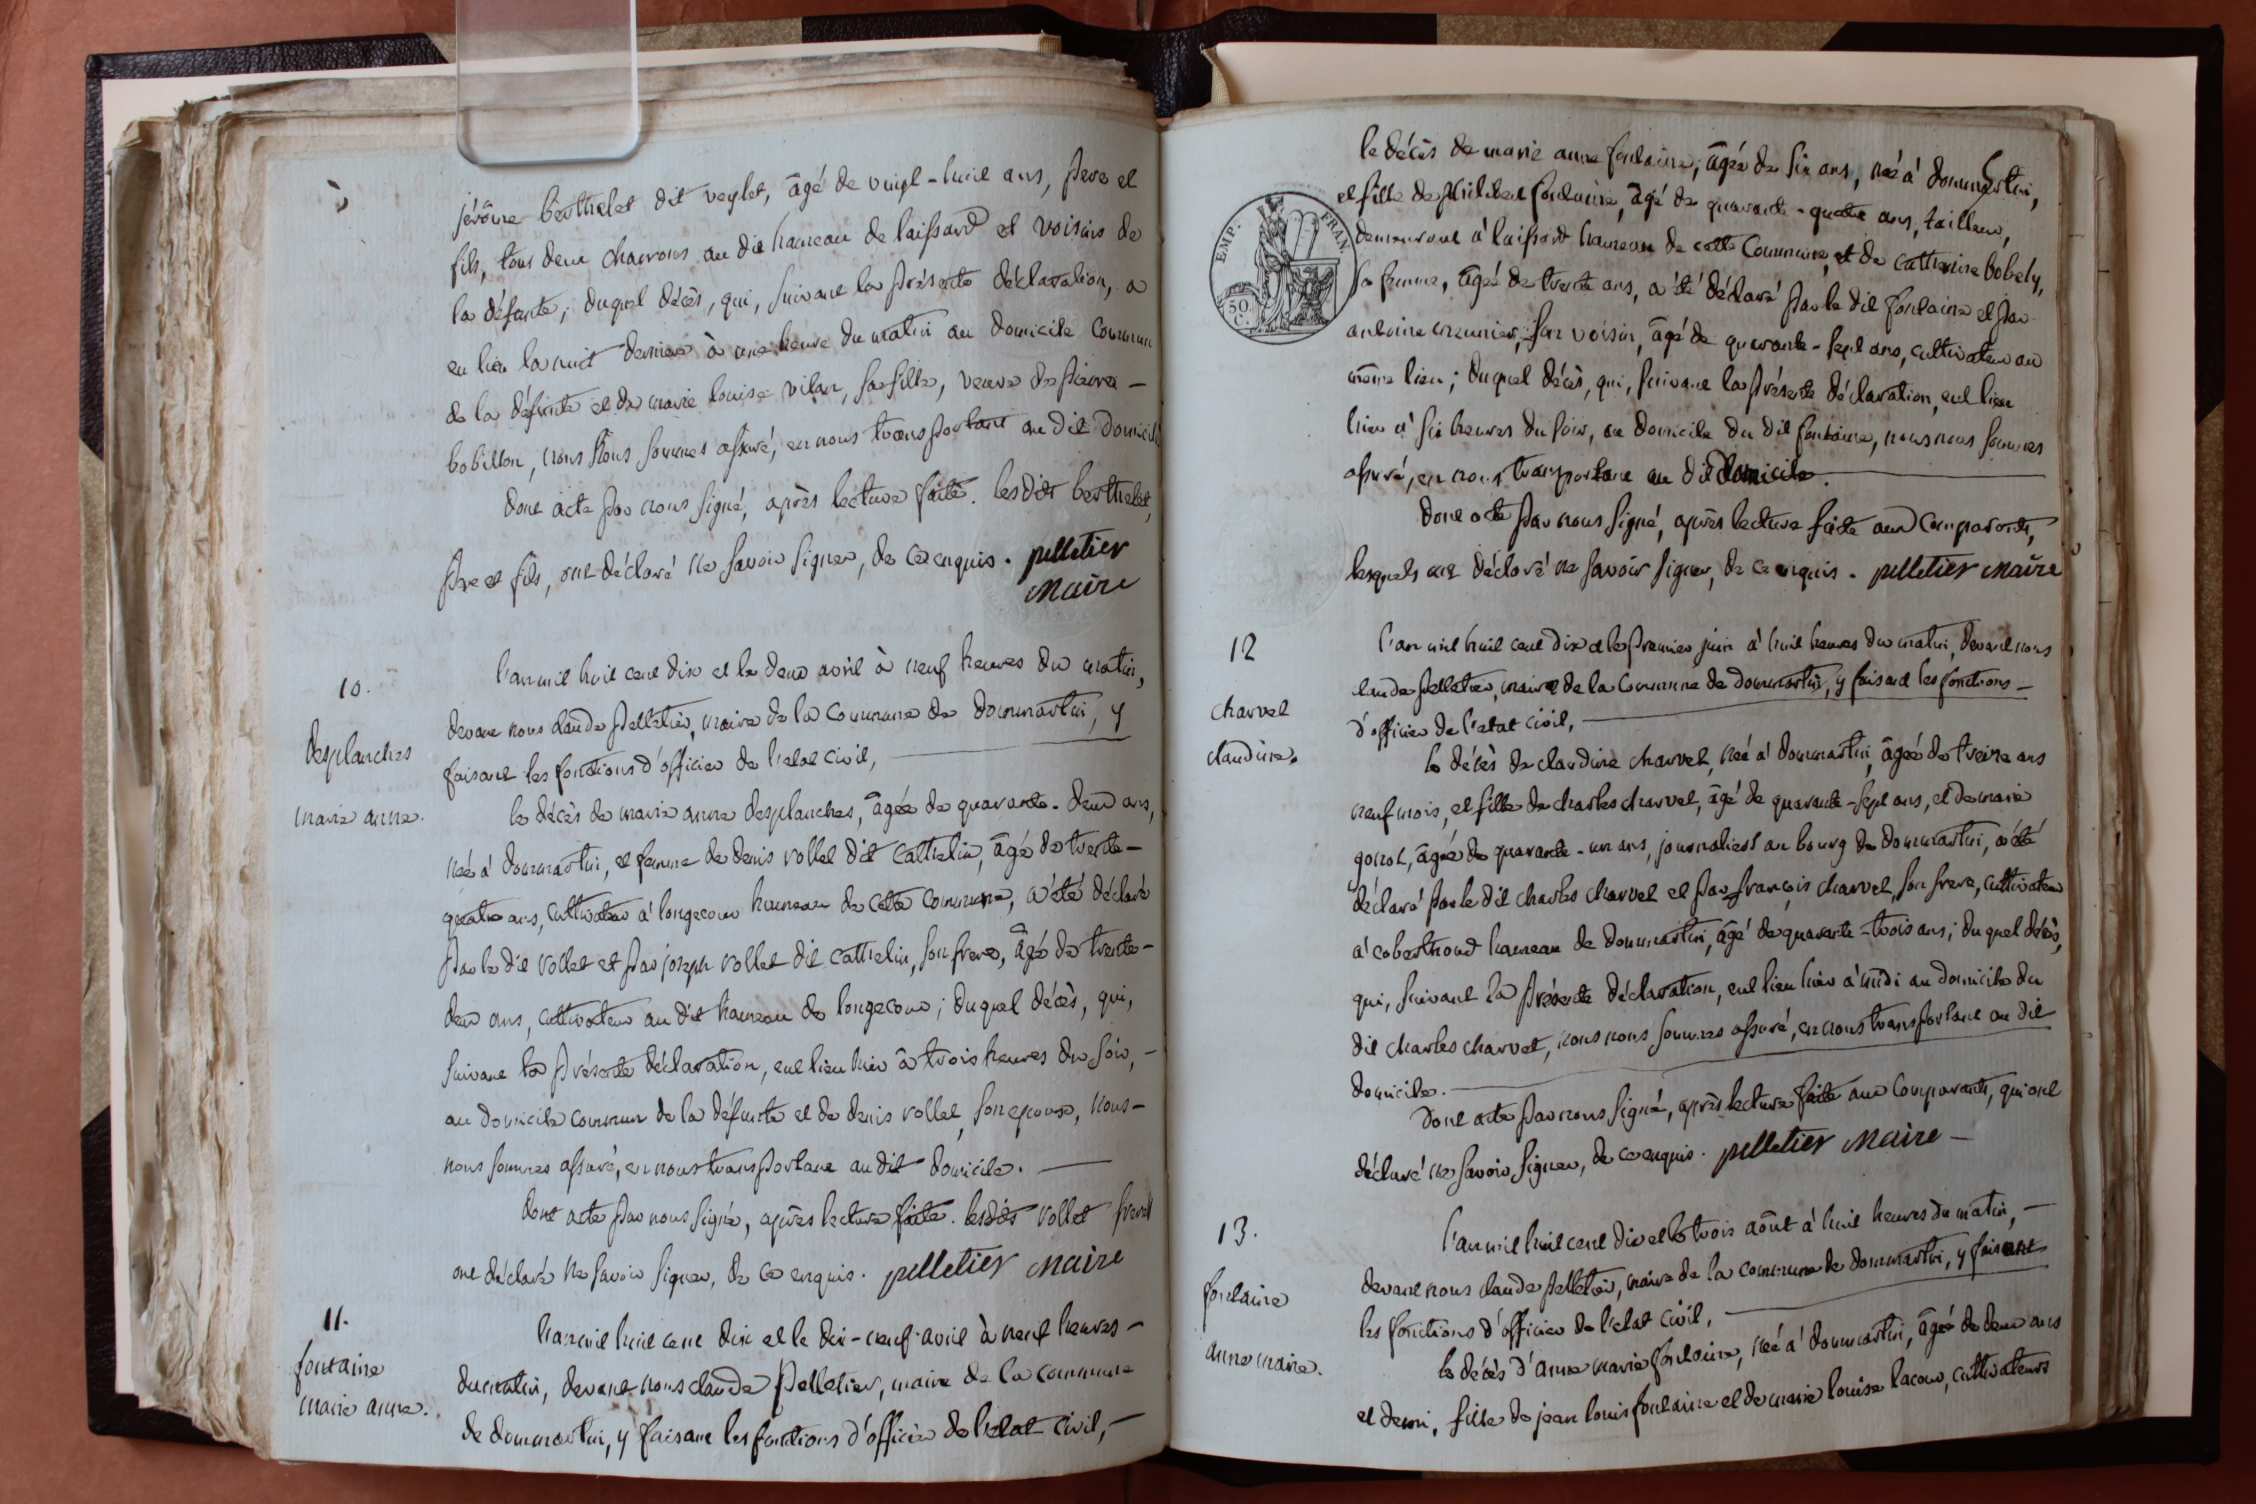 jérôme berthelet dit veylet, âgé de vingt-huit ans, pere et
fils, tous deux charrons au dit hameau de laissard et voisins de
la défunte; duquel décès, qui, suivant la présente déclaration, a
eu lieu la nuit derniere à une heure du matin au domicile commun
de la défunte et de marie louise vilar, sa fille, veuve de pierre –
bobillon, nous nous sommes assuré, en nous transportant au dit domicile
dont acte par nous signé, après lecture faite. les dits berthelet,
pere et fils, ont déclaré ne savoir signer, de ce enquis. pelletier
maire
10.
desplanches
marie anne.
l'an mil huit cent dix et le deux avril à neuf heures du matin,
devant nous claude pelletier, maire de la commune de dommartin, y
faisant les fonctions d'officier de l'etat civil,
le décès de marie anne desplanches, âgée de quarante-deux ans,
née à dommartin, et femme de denis vollet dit cathelin, âgé de trente-
quatre ans, cultivateur à longecour hameau de cette commune, a été déclaré
par le dit vollet et par joseph vollet dit cathelin, son frere, âgé de trente-
deux ans, cultivateur au dit hameau de longecour; duquel décès, qui,
suivant la présente déclaration, eut lieu hier à trois heures du soir, –
au domicile commun de la défunte et de denis vollet, son epoux, nous –
nous sommes assuré, en nous transportant au dit domicile.
dont acte par nous signé, après lecture faite. les dits vollet freres
ont déclaré ne savoir signer, de ce enquis. pelletier maire
11.
fontaine
marie anne.
l'an mil huit cent dix et le dix-neuf avril à neuf heures –
du matin, devant nous claude pelletier, maire de la commune
de dommartin, y faisant les fonctions d'officier de l'etat civil, –
EMP. FRAN.
50
C.
le décès de marie anne fontaine, âgée de six ans, née à dommartin,
et fille de philibert fontaine, âgé de quarante-quatre ans, tailleur,
demeurant à laissard hameau de cette commune, et de catherine bobely,
sa femme, âgée de trente ans, a été déclaré par le dit fontaine et par
antoine meunier, son voisin, âgé de quarante-sept ans, cultivateur au
même lieu; duquel décès, qui, suivant la présente déclaration, eut lieu
hier à six heures du soir, au domicile du dit fontaine, nous nous sommes
assuré, en nous transportant au dit domicile.
dont acte par nous signé, après lecture faite aux comparants,
lesquels ont déclaré ne savoir signer, de ce enquis. pelletier maire
12
charvet
claudine.
l'an mil huit cent dix et le premier juin à huit heures du matin, devant nous
claude pelletier, maire de la commune de dommartin, y faisant les fonctions –
d'officier de l'etat civil,
le décès de claudine charvet, née à dommartin, âgée de treize ans
neuf mois, et fille de charles charvet, âgé de quarante-sept ans, et de marie
gonot, âgée de quarante-un ans, journaliers au bourg de dommartin, a été
déclaré par le dit charles charvet et par françois charvet, son frere, cultivateur
à coberthoud hameau de dommartin, âgé de quarante-trois ans; duquel décès,
qui, suivant la présente déclaration, eut lieu hier à midi au domicile du
dit charles charvet, nous nous sommes assuré, en nous transportant au dit
domicile.
dont acte par nous signé, après lecture faite aux comparants, qui ont
déclaré ne savoir signer, de ce enquis. pelletier maire –
13.
fontaine
anne marie.
l'an mil huit cent dix et le trois août à huit heures du matin, –
devant nous claude pelletier, maire de la commune de dommartin, y faisant
les fonctions d'officier de l'etat civil,
le décès d'anne marie fontaine, née à dommartin, âgée de deux ans
et demi, fille de jean louis fontaine et de marie louise lacour, cultivateurs